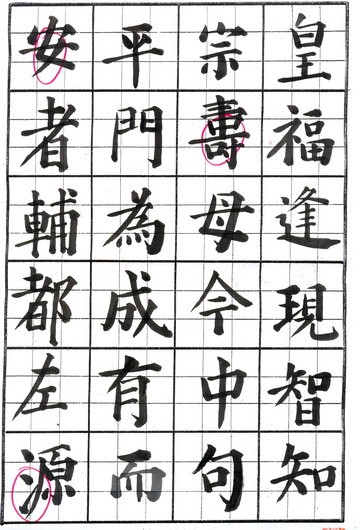 皇福逢現智知
宗壽母今中句
平門為成有而
安者輔都左源